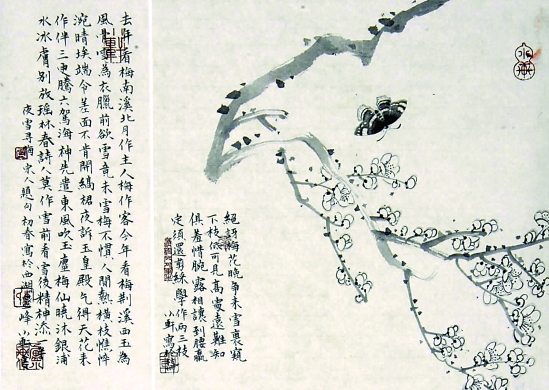 去年看梅南溪北月作主人梅作客今年看梅荆溪西玉為
風骨雪為衣臘前欲雪竟未雪梅不慣人間熱橫枝憔悴
涴晴埃端令羞面不肯開縞裙夜訴玉皇殿乞得天花来
作伴三更騰六駕海神先遣東風吹玉塵梅仙曉沐銀浦
水冰膚別放瑶林春詩人莫作雪前看雪後精神添一
夜雪尋梅宋人題句初春寫於西湖靈峰小軒
絕訝梅花晚爭来雪裏窺
下枝低可見高處遠難知
俱羞惜腕露相讓到腰羸
定須還剪綵學作兩三枝
小軒寫